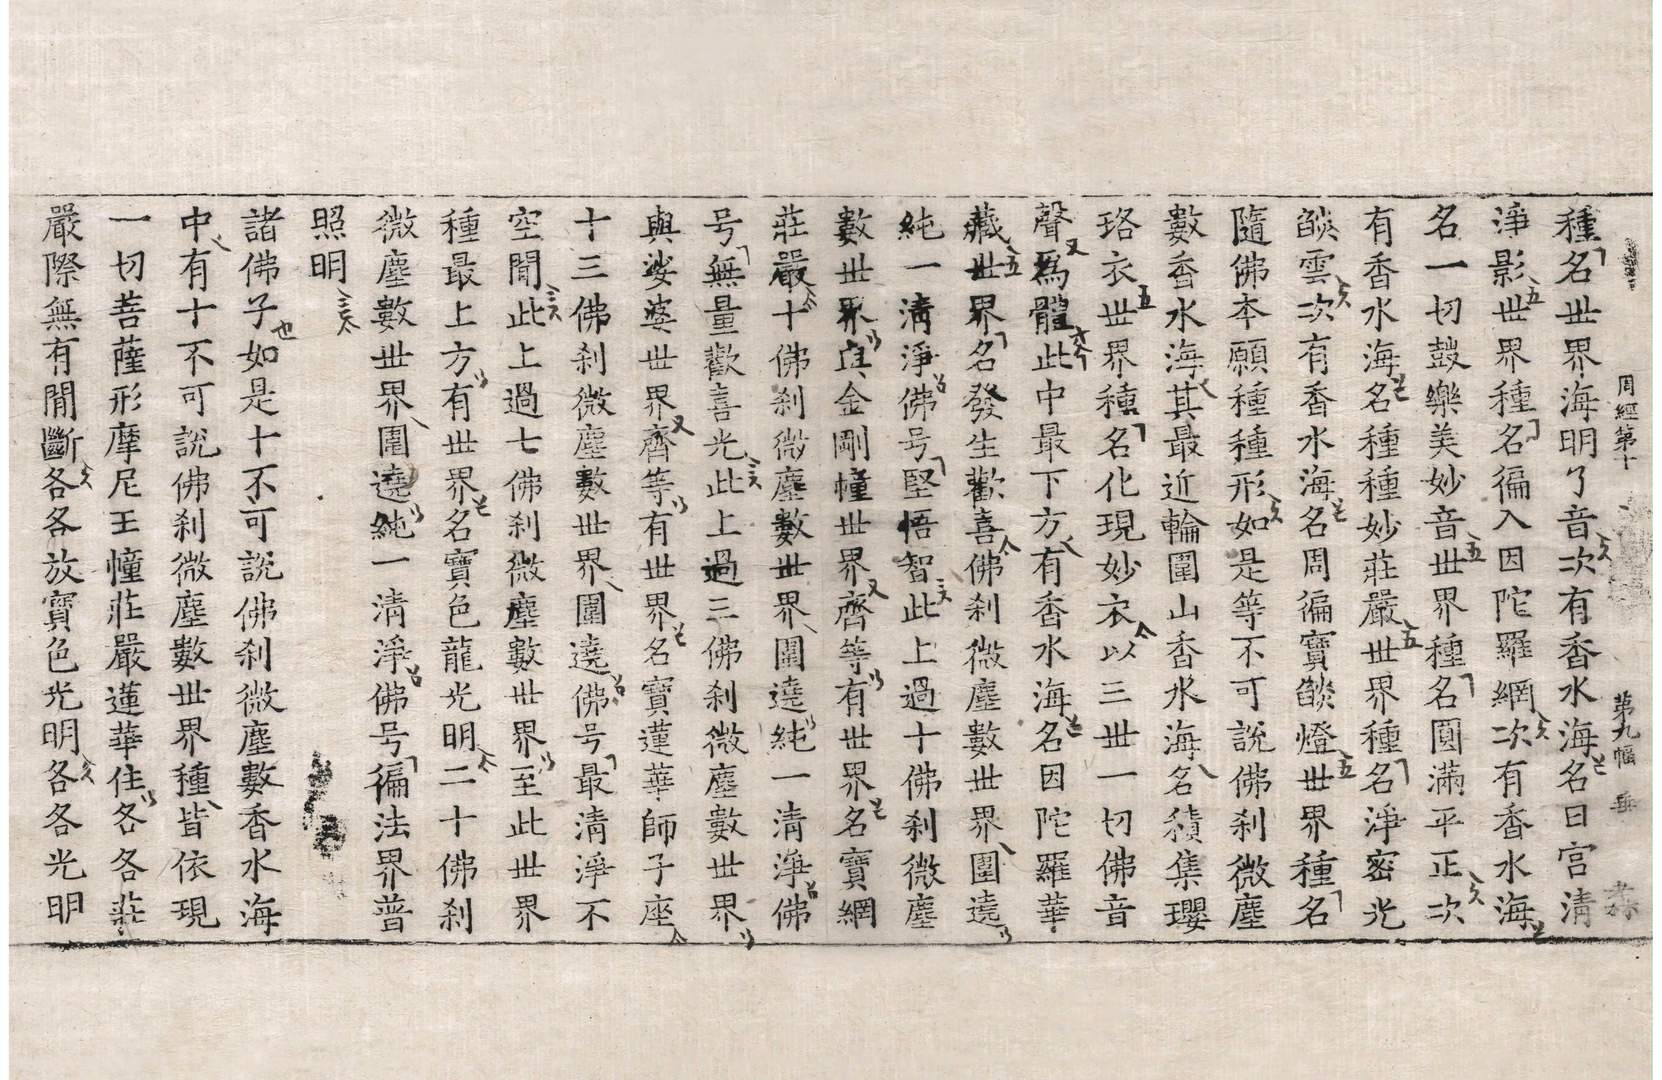 周經第十 第九幅
種名世界海明了音次有香水海名日宫清
淨影世界種名徧入因陀羅網次有香水海
名一切鼓樂美妙音世界種名圓滿平正次
有香水海名種種妙莊嚴世界種名淨密光
燄雲次有香水海名周徧寶燄燈世界種名
隨佛本願種種形如是等不可說佛刹微塵
數香水海其最近輪圍山香水海名積集瓔
珞衣世界種名化現妙衣以三世一切佛音
聲爲體此中最下方有香水海名因陀羅華
藏世界名發生歡喜佛刹微塵數世界圍遶
純一清淨佛号堅悟智此上過十佛刹微塵
數世界與金剛幢世界齊等有世界名寶網
莊嚴十佛刹微塵數世界圍遶純一清淨佛
号無量歡喜光此上過三佛刹微塵數世界
與娑婆世界齊等有世界名寶蓮華師子座
十三佛刹微塵數世界圍遶佛号最清淨不
空聞此上過七佛刹微塵數世界至此世界
種最上方有世界名寶色龍光明二十佛刹
微塵數世界圍遶純一清淨佛号徧法界普
照明
諸佛子如是十不可說佛刹微塵數香水海
中有十不可說佛刹微塵數世界種皆依現
一切菩薩形摩尼王幢莊嚴蓮華住各各莊
嚴際無有間斷各各放寶色光明各各光明